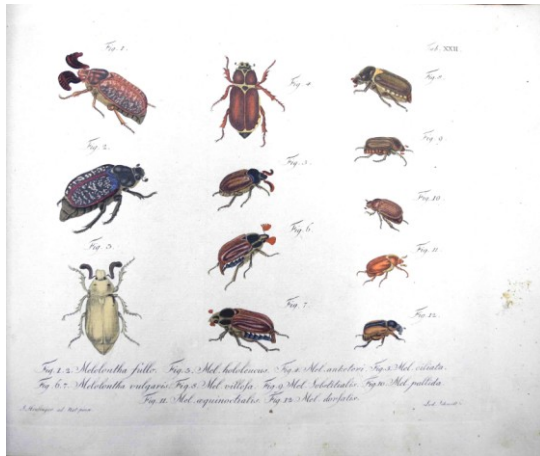 Fig. 1.
Tab. XXII.
Fig. 4.
Fig. 8.
Fig. 2.
Fig. 5.
Fig. 9.
Fig. 10.
Fig. 3.
Fig. 6.
Fig. 11.
Fig. 7.
Fig. 12.
Fig. 1. 2. Melolontha fullo. Fig. 3. Mel. hololeucus. Fig. 4. Mel. anketeri. Fig. 5. Mel. ciliata.
Fig. 6. 7. Melolontha vulgaris. Fig. 8. Mel. villosa. Fig. 9. Mel. Solstitialis. Fig. 10. Mel. pallida.
Fig. 11. Mel. æquinoctialis. Fig. 12. Mel. dorsalis.